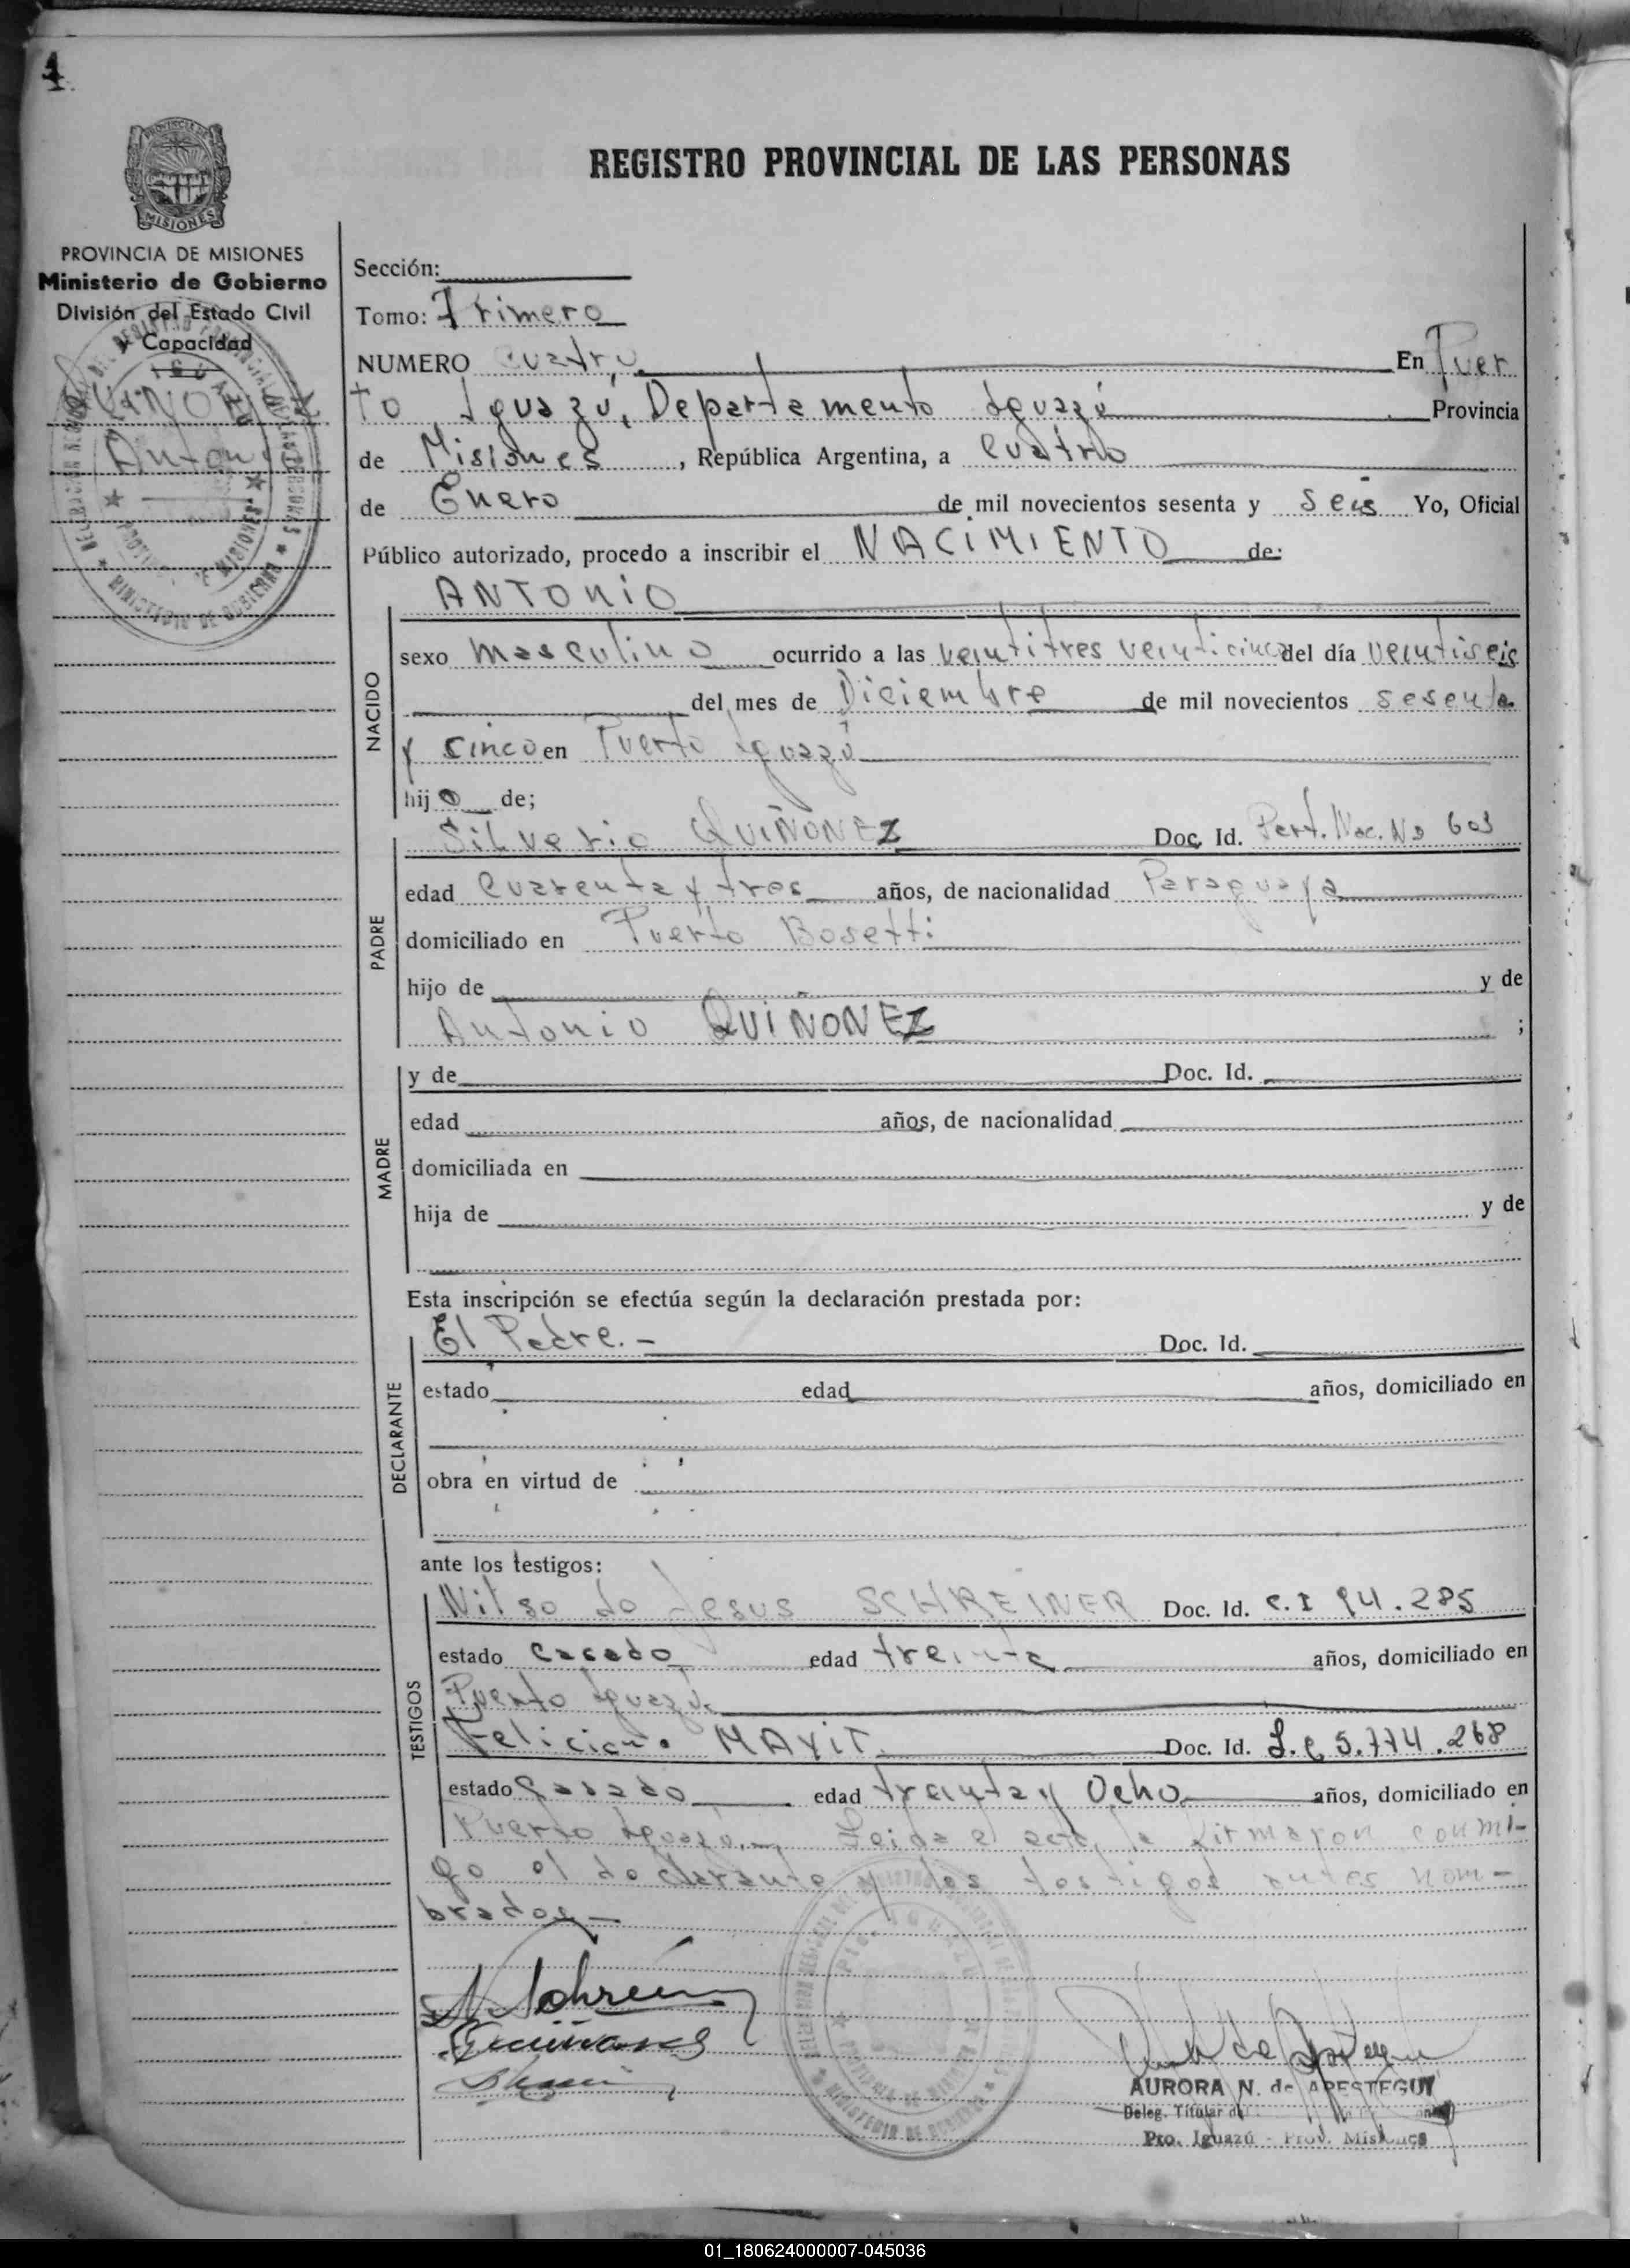 1
PROVINCIA DE
MISIONES
REGISTRO PROVINCIAL DE LAS PERSONAS
PROVINCIA DE MISIONES
Ministerio de Gobierno
División del Estado Civil
y Capacidad
QUIÑONEZ
Antonio
Sección:
Tomo: Primero
NUMERO cuatro En Puer
to Iguazú, Departamento Iguazú Provincia
de Misiones, República Argentina, a cuatro
de Enero de mil novecientos sesenta y seis Yo, Oficial
Público autorizado, procedo a inscribir el NACIMIENTO de:
NACIDO
ANTONIO
sexo masculino ocurrido a las veintitres veinticinco del día veintiseis
del mes de Diciembre de mil novecientos sesenta
y cinco en Puerto Iguazú
hijo de;
PADRE
Silverio QUIÑONEZ Doc. Id. Perf. Nac. No 603
edad cuarenta y tres años, de nacionalidad Paraguaya
domiciliado en Puerto Bosetti
hijo de y de
Antonio QUIÑONEZ ;
MADRE
y de Doc. Id.
edad años, de nacionalidad
domiciliada en
hija de y de
Esta inscripción se efectúa según la declaración prestada por:
DECLARANTE
El Padre. - Doc. Id.
estado edad años, domiciliado en
obra en virtud de
ante los testigos:
TESTIGOS
Nilso do Jesus SCHREINER Doc. Id. C.I 94.285
estado casado edad treinta años, domiciliado en
Puerto Iguazú.
Feliciano MAYIT Doc. Id. L.E 5.774.268
estado casado edad treinta y Ocho años, domiciliado en
Puerto Iguazú.- Leida el acta, la firmaron conmi-
go el declarante y los testigos antes nom-
brados-
Quiñones
AURORA N. de APESTEGUY
Deleg. Titular
Pto. Iguazú - Prov. Misiones
01_180624000007-045036